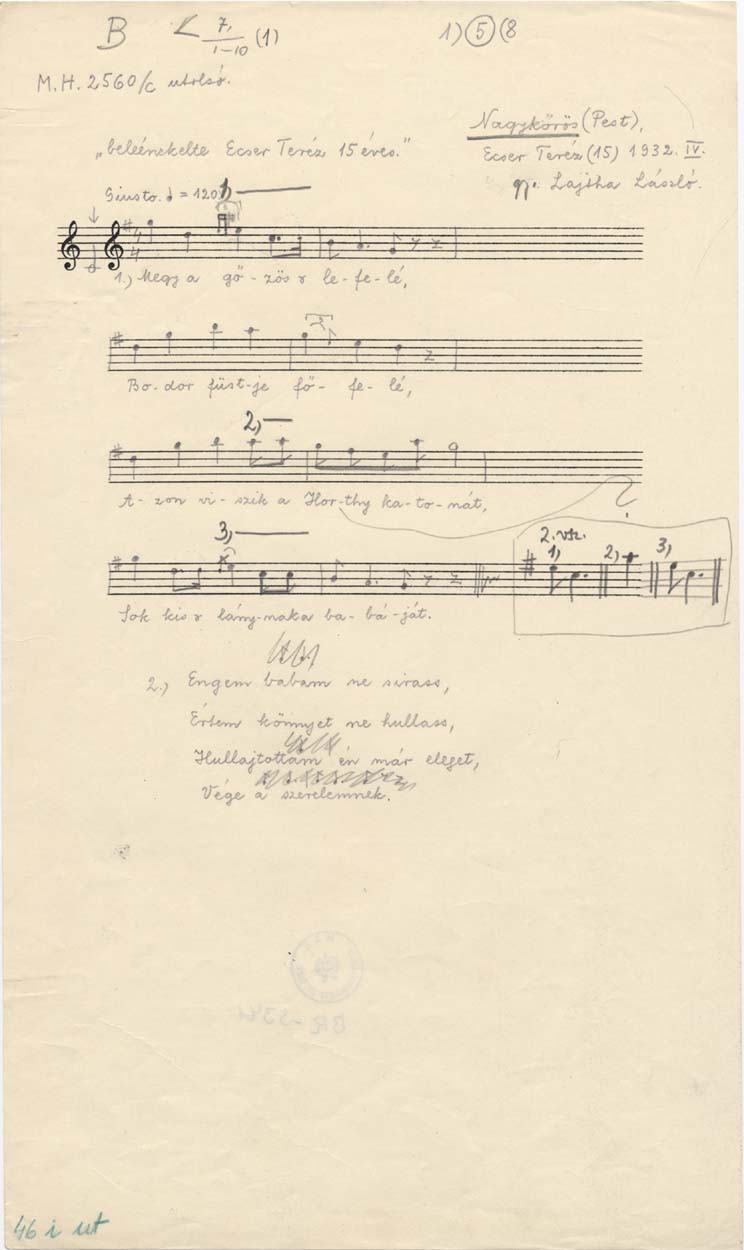 B < 7, (1)
1-10
1) 5 (8
M.H. 2560/c utolsó.
Nagykőrös (Pest),
"beleénekelte Ecser Teréz 15 éves."
Ecser Teréz (15) 1932. IV.
gy. Lajtha László.
Giusto. = 120
1)
4
4
1.) Megy a gő-zös r le-fe-lé,
2
Bo-dor füst-je fö-fe-lé,
2)
A-zon vi-szik a Hor-thy ka-to-nát,
?
3)
2. vsz.
1) 2) 3)
Sok kis r lány-naka ba-bá-ját.
2.) Engem babám ne sirass,
Értem könnyet ne hullass,
Hullajtottam én már eleget,
Vége a szerelemnek.
46 i ut